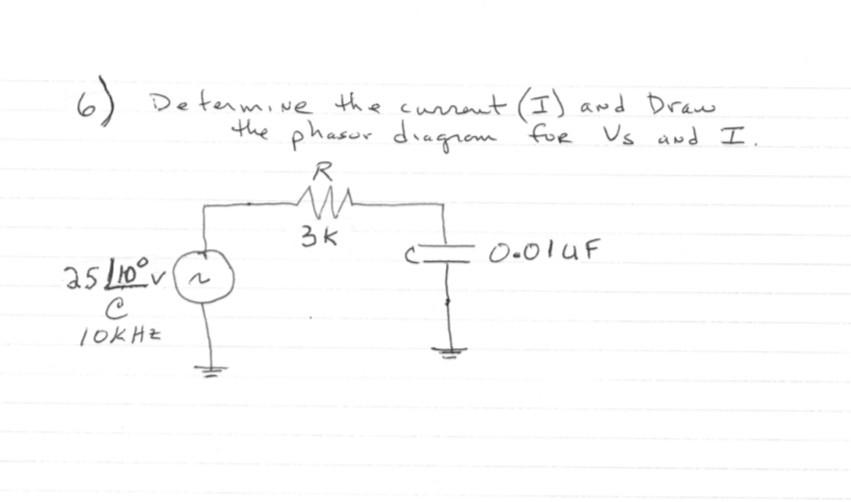 6) Determine the current (I) and Draw
the phasor diagram for Vs and I.
R
3K
C 0.01uF
25∠10° v ~
@
10KHz